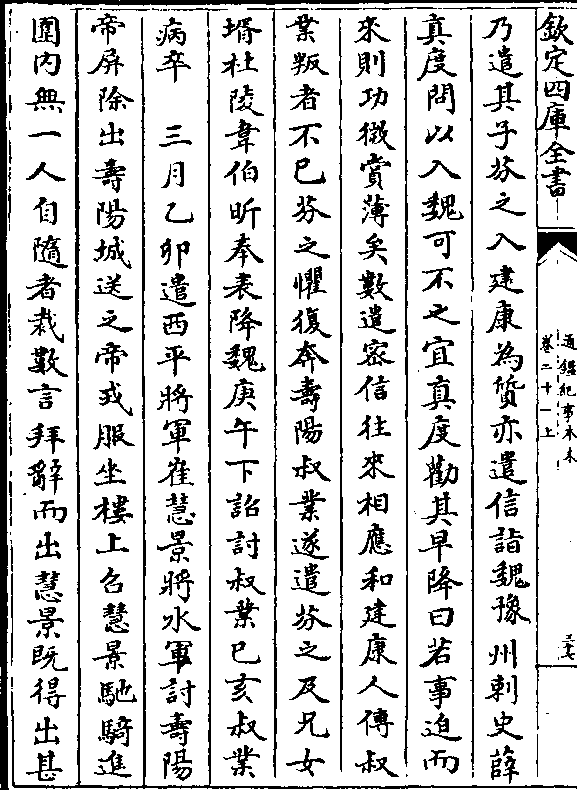 欽定四庫全書
通鑑紀事本末
卷二十一上
三十七
乃遣其子芬之入建康為質亦遣信詣魏豫州刺史薛
真度問以入魏可不之宜真度勸其早降曰若事迫而
來則功微賞薄矣數遣密信往來相應和建康人傳叔
業叛者不已芬之懼復奔壽陽叔業遂遣芬之及兄女
壻杜陵韋伯昕奉表降魏庚午下詔討叔業已亥叔業
病卒 三月乙卯遣西平將軍崔慧景將水軍討壽陽
帝屏除出壽陽城送之帝戎服坐樓上召慧景馳騎進
圍内無一人自隨者裁數言拜辭而出慧景既得出甚